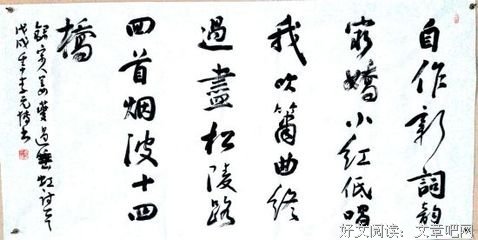 自作新詞韵
最嬌小红低唱
我吹簫曲终
過盡松陵路
回首烟波十四
橋
錄宋人姜夔過垂虹诗
戊戌年
好文阅读：文章吧网